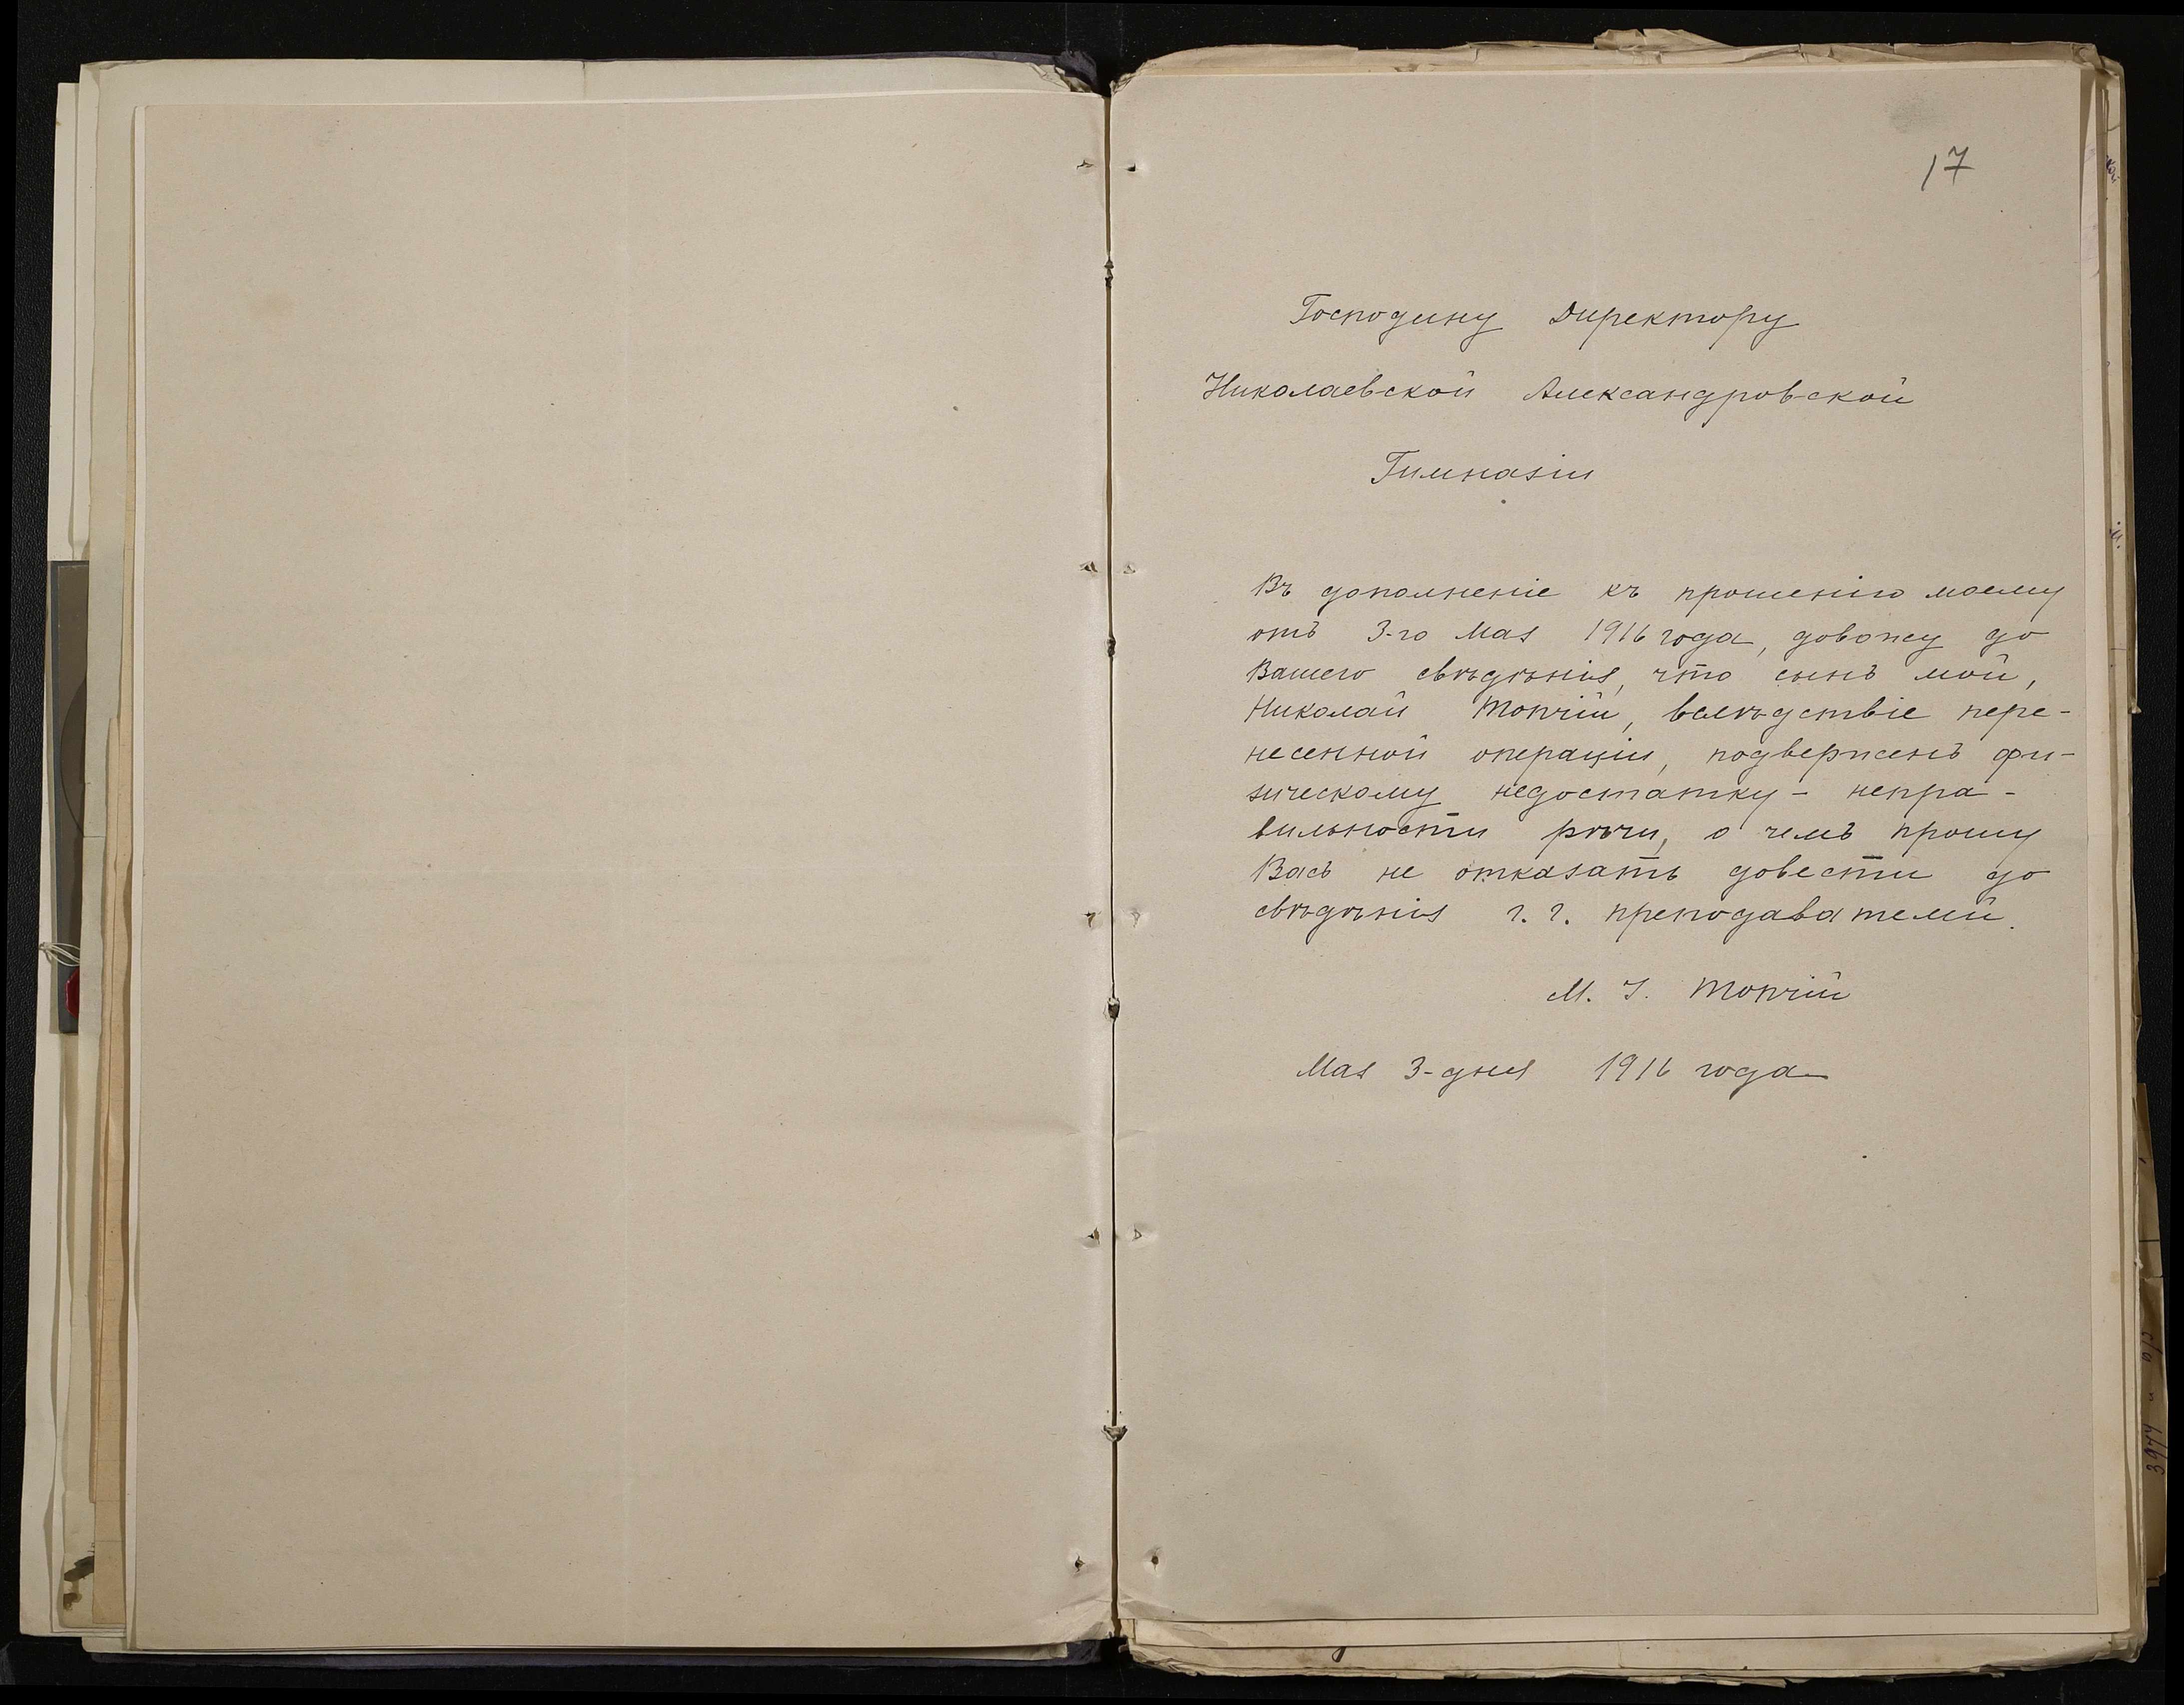 17
Господину Директору
Николаевской Александровской
Гимназіи
Въ дополненіе къ прошенію моему
отъ 3-го Мая 1916 года, довожу до
Вашего свѣдѣнія, что сынъ мой,
Николай Топчій, вслѣдствіе пере-
несенной операціи, подверженъ фи-
зическому недостатку - непра-
вильности рѣчи, о чемъ прошу
Васъ не отказать довести до
свѣдѣнія г. г. преподавателей.
М. І. Топчій
Мая 3-дня 1916 года